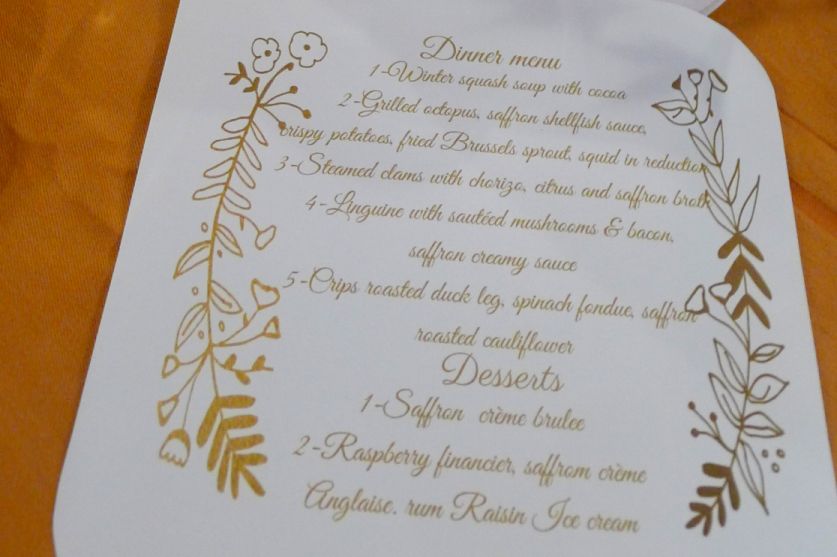 Dinner menu
1-Winter squash soup with cocoa
2-Grilled octopus, saffron shellfish sauce,
crispy potatoes, fried Brussels sprout, squid in reduction
3-Steamed clams with chorizo, citrus and saffron broth
4-Linguine with sautéed mushrooms & bacon,
saffron creamy sauce
5-Crips roasted duck leg, spinach fondue, saffron
roasted cauliflower
Desserts
1-Saffron crème brulee
2-Raspberry financier, saffrom crème
Anglaise. rum Raisin Ice cream